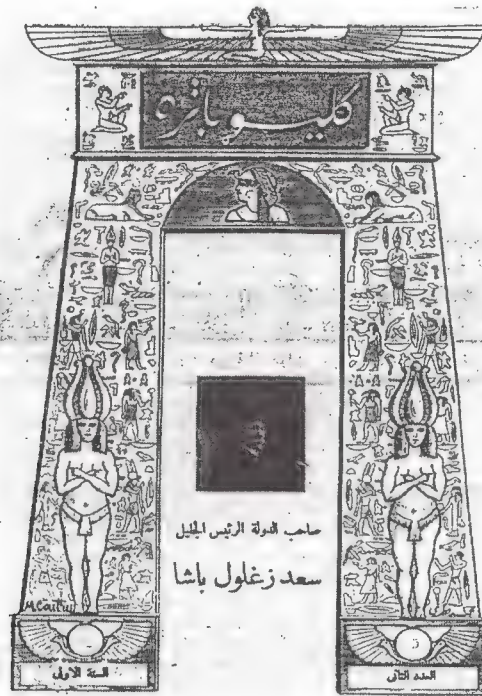 كليوباترة
صاحب الدولة الرئيس الجليل
سعد زغلول باشا
السنة الاولى
العدد الثاني